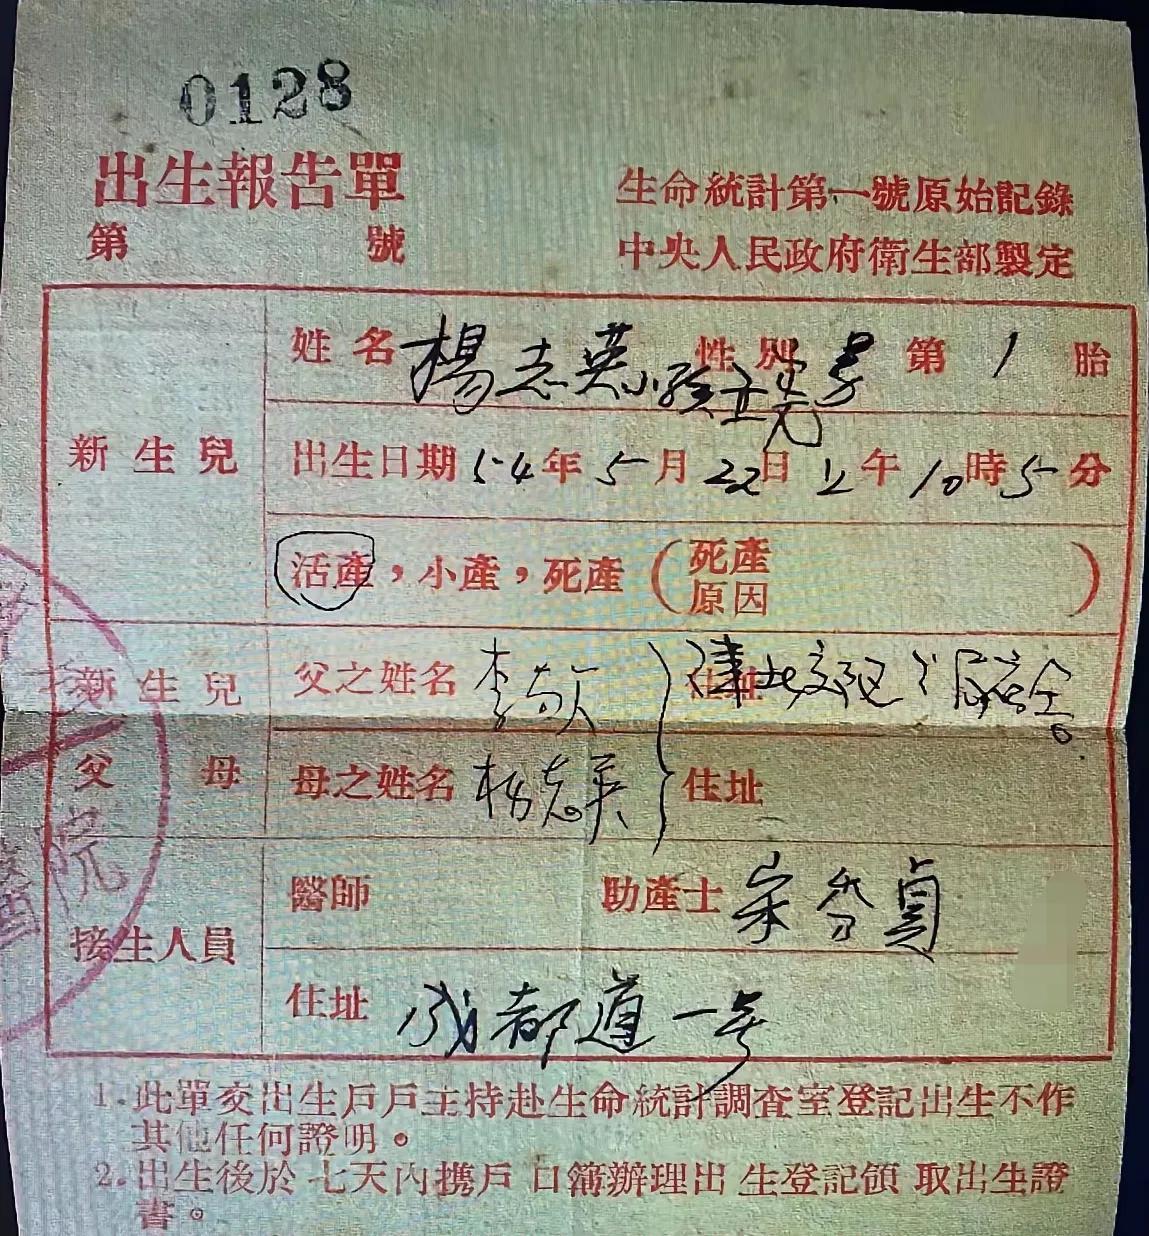 0128
出生報告單
第 號
生命統計第一號原始記錄
中央人民政府衛生部製定
新生兒
姓名 楊志英小孩 性別 男 第 1 胎
出生日期 54年5月22日 上午10時5分
活產,小產,死產(死產原因 )
新生兒父母
父之姓名 李
母之姓名 楊志英
住址
住址
接生人員
醫師 助產士 宋 貞
住址 成都道一号
院
1.此單交出生戶戶主持赴生命統計調查室登記出生不作
其他任何證明。
2.出生後於七天內攜戶口簿辦理出生登記領取出生證
書。